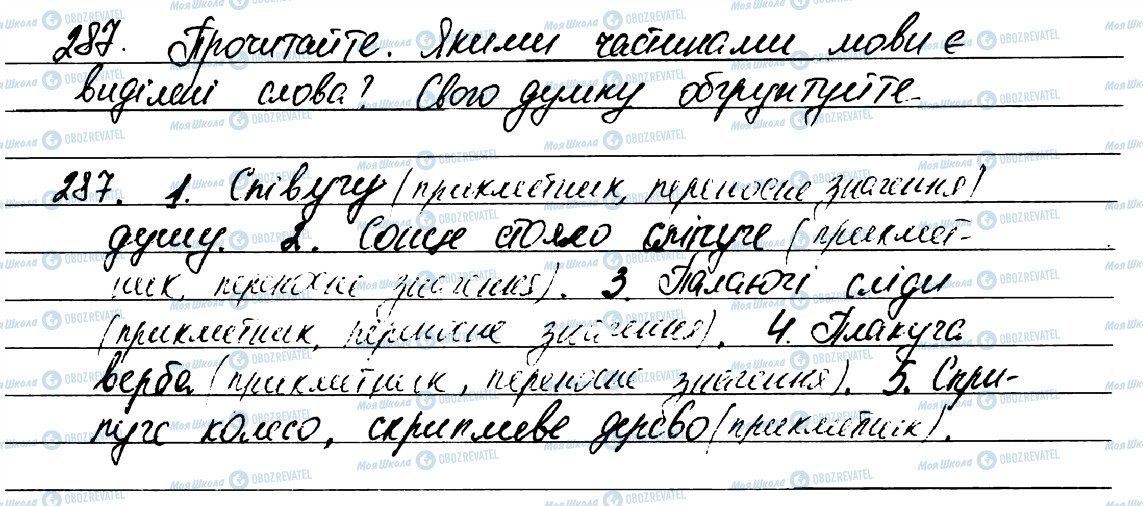 287. Прочитайте. Якими частинами мови є
виділені слова? Свого думку обґрунтуйте.
287. 1. Співучу (прикметник, переносне значення)
душу. 2. Сонце стояло сліпуче (прикмет-
ник, переносне значення). 3. Палаючі сліди
(прикметник, переносне значення). 4. Плакуча
верба (прикметник, переносне значення). 5. Скри-
пуче колесо, скрипливе дерево (прикметник).